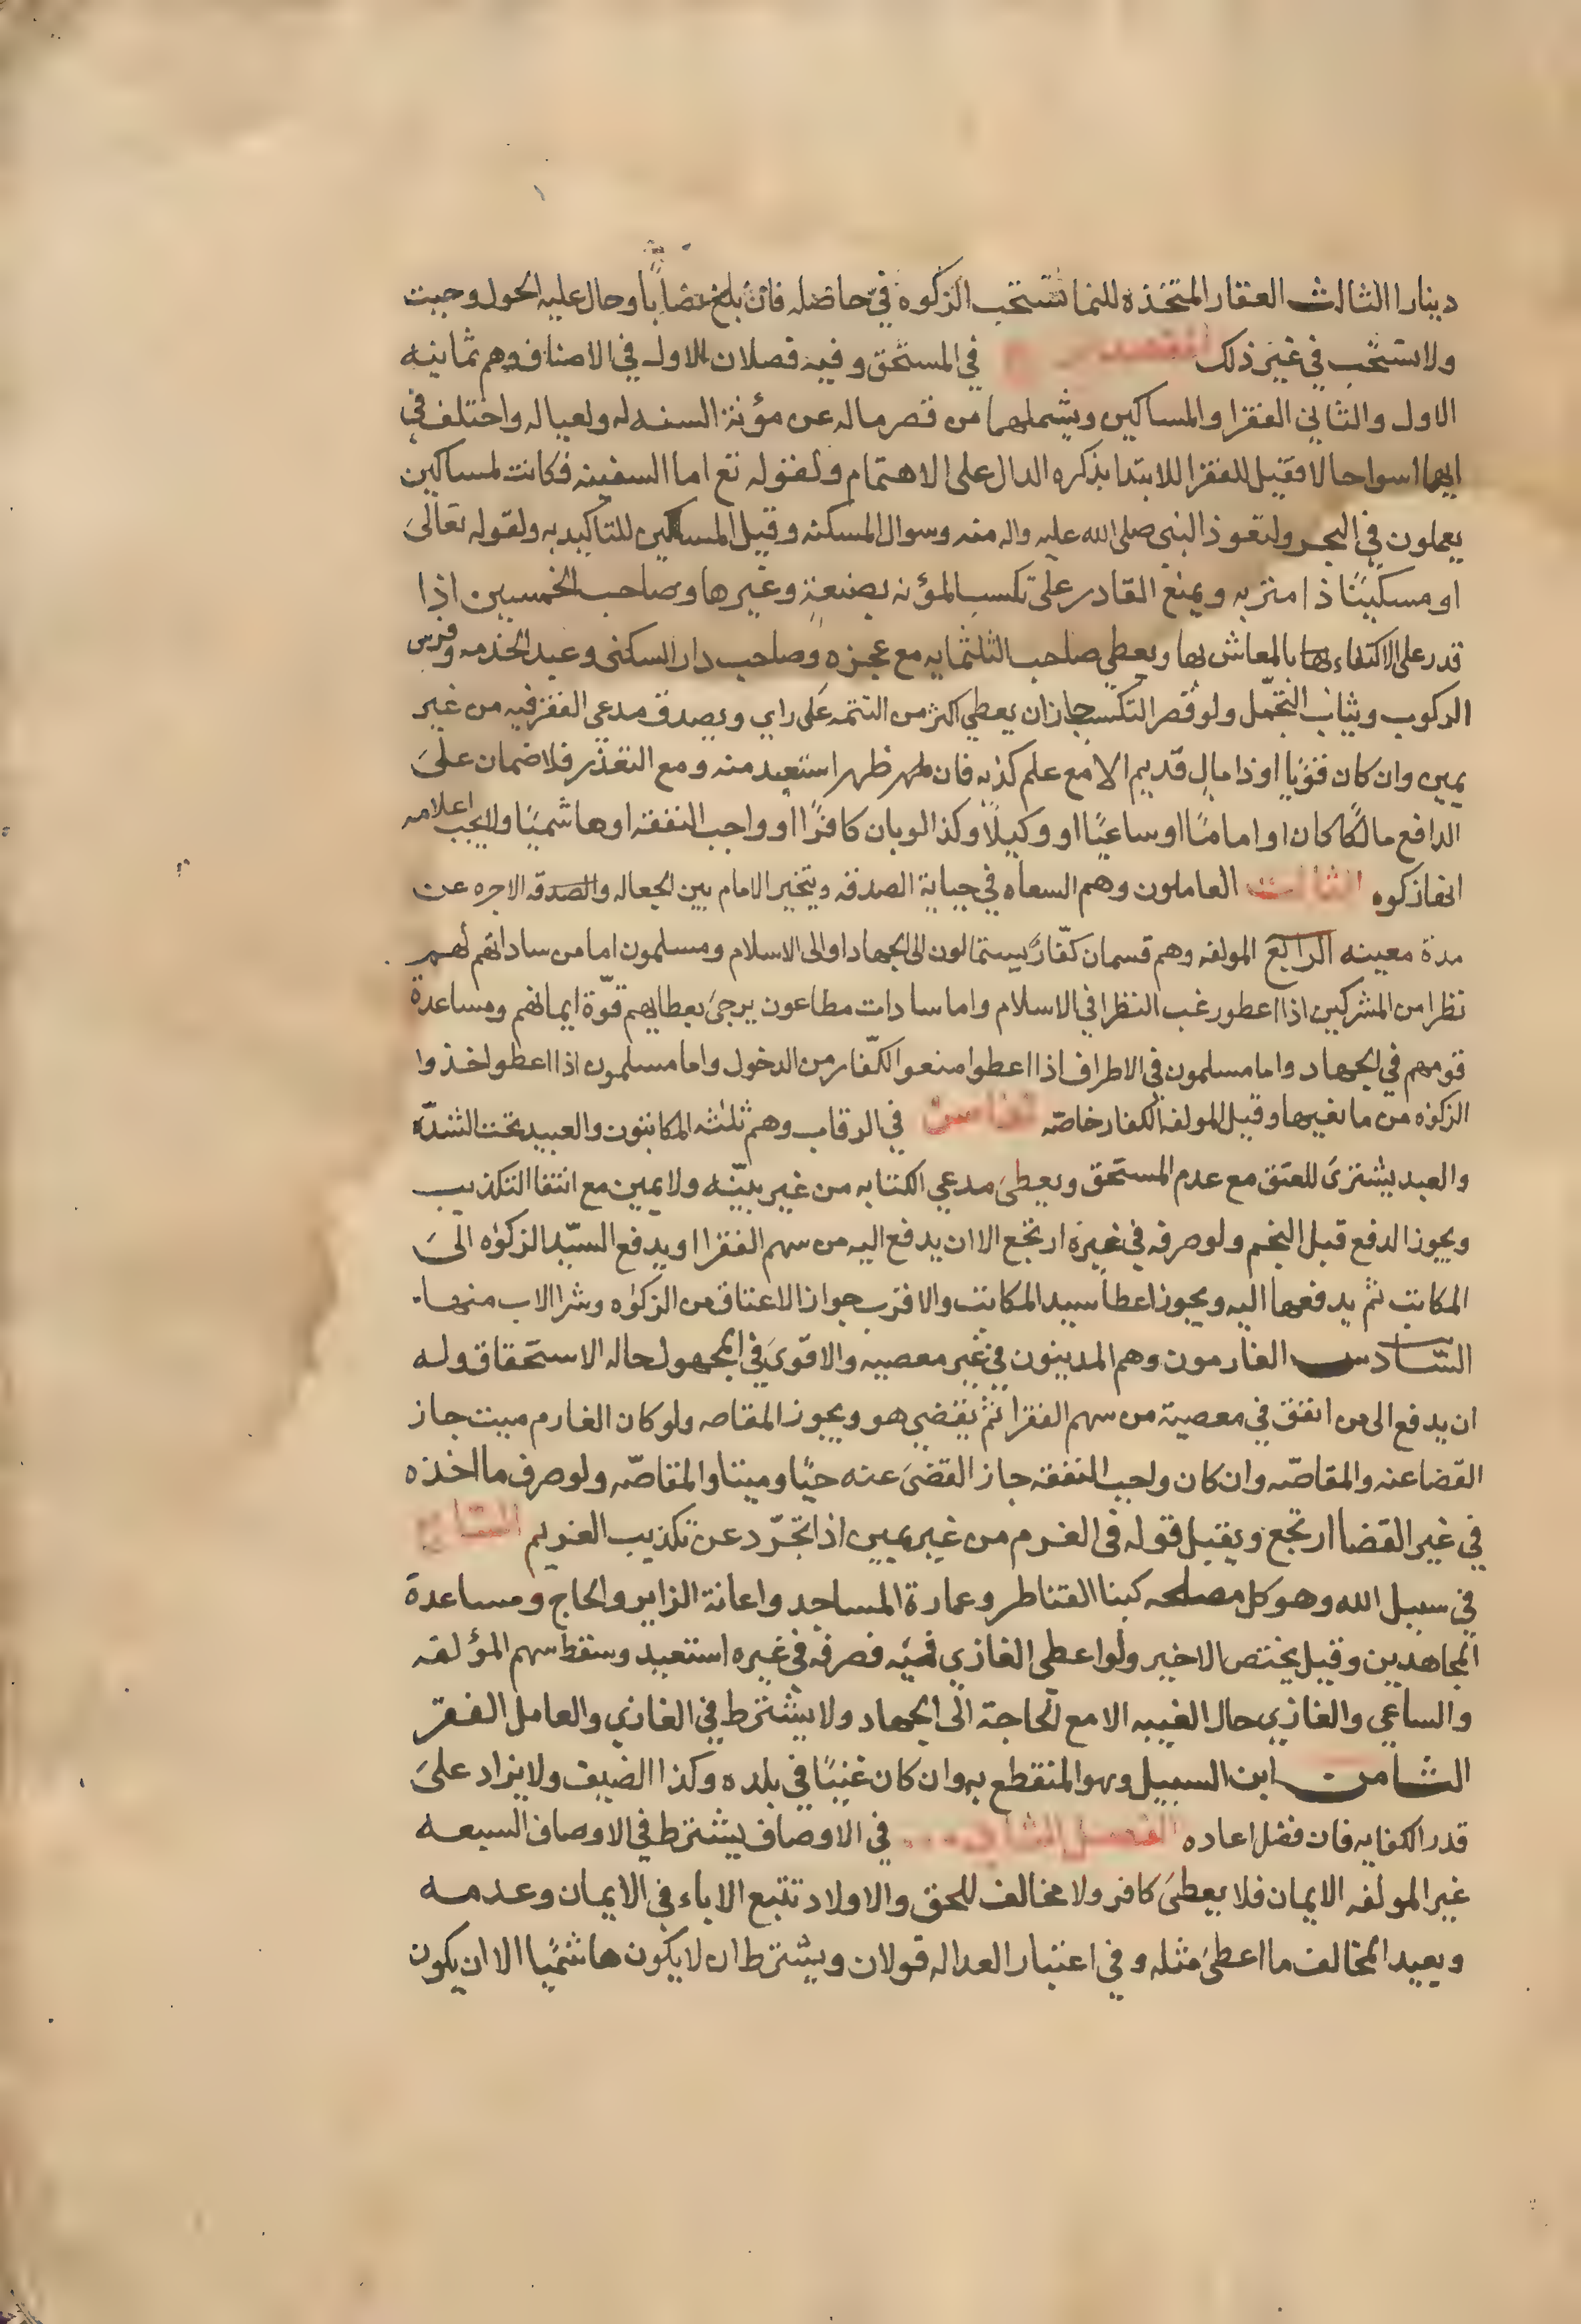 دينارا الثالث العقار المتخذه للنما تستحب الزكوة في حاصله فان بلغ نصابا وحال عليه الحول وجبت
ولا تستحب في غير ذلك المقصد في المستحق وفيه فصلان الاول في الاصناف وهم ثمانيه
الاول والثاني الفقرا والمساكين ويشملهما من قصر ماله عن مؤنة السنه له ولعياله واختلف في
ايهما اسوا حالا فقيل للفقرا للابتدا بذكره الدال على الاهتمام ولقوله تع اما السفينه فكانت لمساكين
يعملون في البحر ولتعوذ النبي صلى الله عليه واله منه وسوال المسكنه وقيل المساكين للتاكيد به ولقوله تعالى
او مسكينا ذا متربه ويمنع القادر على تكسب المؤنه بصنعة وغيرها وصاحب الخمسين اذا
قدر على الاكتفاء بها بالمعاش بها ويعطي صاحب الثلثمايه مع عجزه وصاحب دار السكنى وعبد الخدمه وفرس
الركوب وثياب التجمّل ولو قصر التكسب جاز ان يعطي اكثر من التتمه على راي ويصدق مدعي الفقر فيه من غير
يمين وان كان قويّا او ذا مال قديم الا مع علم كذبه فان ظهر استعيد منه ومع التعذر فلا ضمان على
الدافع مالكًا كان او امامًا او ساعيًا او وكيلًا وكذا لو بان كافرًا او واجب النفقه او هاشميًا ولا يجب اعلامه
انها زكوه الثالث العاملون وهم السعاه في جباية الصدقه ويتخير الامام بين الجعاله والصدقه الاجره عن
مدة معينه الرابع المولفه وهم قسمان كفّار يستمالون الى الجهاد او الى الاسلام ومسلمون اما من ساداتهم لهم
نظرا من المشركين اذا اعطو رغب النظرا في الاسلام واما سادات مطاعون يرجى بعطايهم قوّة ايمانهم ومساعدة
قومهم في الجهاد واما مسلمون في الاطراف اذا اعطوا منعوا الكفّار من الدخول واما مسلمون اذا اعطوا اخذوا
الزكوه من مانعيها وقيل المولفه الكفار خاصّه الخامس في الرقاب وهم ثلثه المكاتبون والعبيد تحت الشدّه
والعبد يشترى للعتق مع عدم المستحق ويعطى مدعي الكتابه من غير بيّنه ولا يمين مع انتفا التكذيب
ويجوز الدفع قبل النجم ولو صرفه في غيره ارتجع الا ان يدفع اليه من سهم الفقرا او يدفع السيّد الزكوٰه الى
المكاتب ثم يدفعها اليه ويجوز اعطا سيد المكاتب والاقرب جواز الاعتاق من الزكوٰه وشرا الاب منها
السّادس الغارمون وهم المدينون في غير معصيه والاقوى في المجهول حاله الاستحقاق وله
ان يدفع الى من انفق في معصية من سهم الفقرا ثم يقضي هو ويجوز المقاصه ولو كان الغارم ميت جاز
القضا عنه والمقاصّه وان كان واجب النفقه جاز القضى عنه حيًا وميتا والمقاصّه ولو صرف ما اخذه
في غير القضا ارتجع ويقبل قوله في الغرم من غير يمين اذا تجرّد عن تكذيب الغريم السّابع
في سبيل الله وهو كل مصلحه كبنا القناطر وعمارة المساجد واعانة الزاير والحاج ومساعدة
المجاهدين وقيل يختص الاخير ولو اعطي الغازي فيه فصرفه في غيره استعيد وسقط سهم المؤلفه
والساعي والغازي حال الغيبه الا مع الحاجة الى الجهاد ولا يشترط في الغازي والعامل الفقر
الثامن ابن السبيل وهو المنقطع به وان كان غنيًا في بلده وكذا الضيف ولا يزاد على
قدر الكفايه فان فضل اعاده الفصل الثاني في الاوصاف يشترط في الاوصاف السبعه
غير المولفه الايمان فلا يعطى كافر ولا مخالف للحق والاولاد تتبع الاباء في الايمان وعدمه
ويعيد المخالف ما اعطى مثله وفي اعتبار العداله قولان ويشترط ان لا يكون هاشميًا الا ان يكون